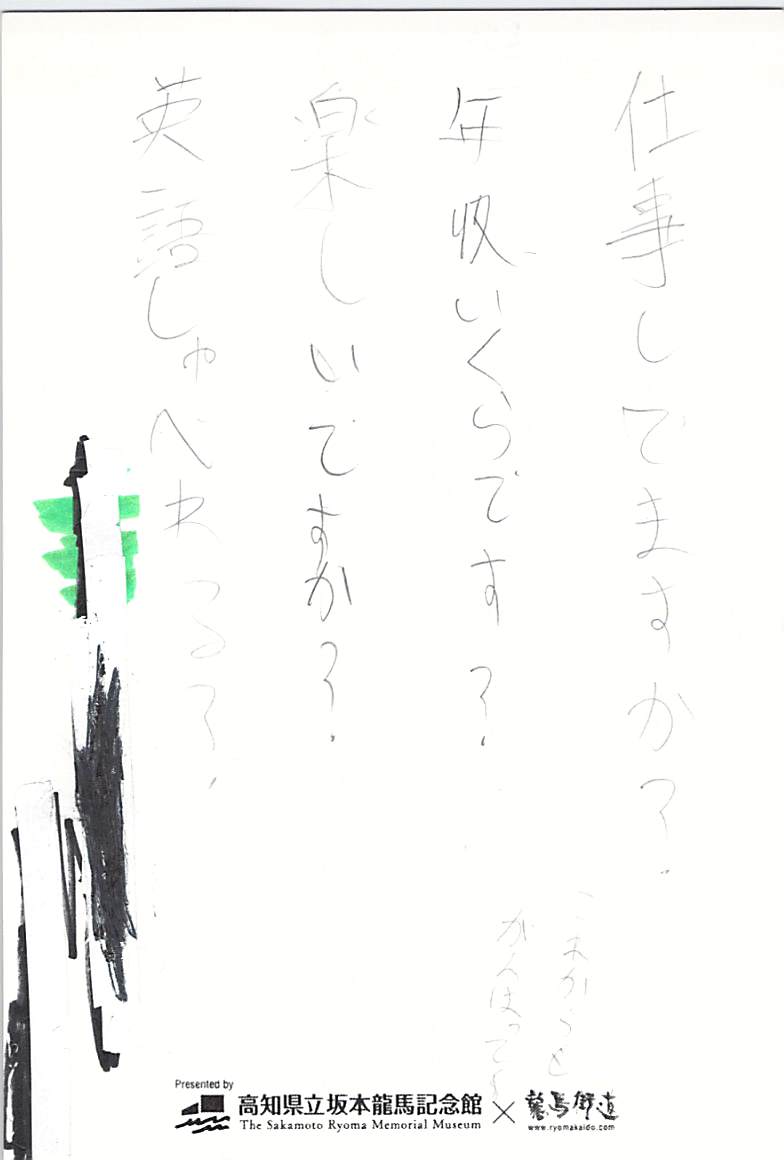 仕事してますか？
年収いくらです？
楽しいですか？
英語しゃべれる？
Presented by
高知県立坂本龍馬記念館
The Sakamoto Ryoma Memorial Museum
×
龍馬街道
www.ryomakaido.com